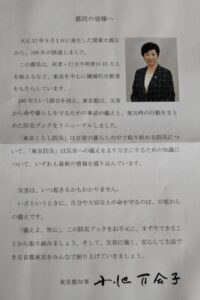 都民の皆様へ
大正12年9月1日に発生した関東大震災
から、100年が経過しました。
この震災は、死者・行方不明者が10万人
を超えるなど、東京を中心に壊滅的な被害
をもたらしています。
100年という節目を迎え、東京都は、災害
から命や暮らしを守るための事前の備えと、発災時の行動をまと
めた防災ブックをリニューアルしました。
「東京くらし防災」は日常の暮らしの中で取り組める防災につ
いて、「東京防災」は災害への備えをより万全にするための知識に
ついて、いずれも最新の情報を盛り込んでいます。
災害は、いつ起きるかもわかりません。
いざというときに、自分や大切な人の命を守るのは、日頃から
の備えです。
「備えよ、常に」。この防災ブックをお手元に、まずできるこ
とから取り組みましょう。そして、災害に強く、安心して生活で
きる首都東京をみんなで創り上げていきましょう。
東京都知事 小池百合子